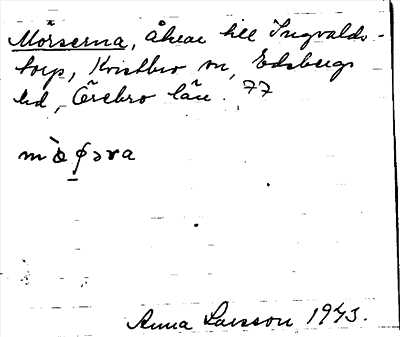 Mörserna, åkrar till Ingvalds-
torp, Kvistbro sn, Edsbergs
hd, Örebro län. 77
Anna Larsson 1943.